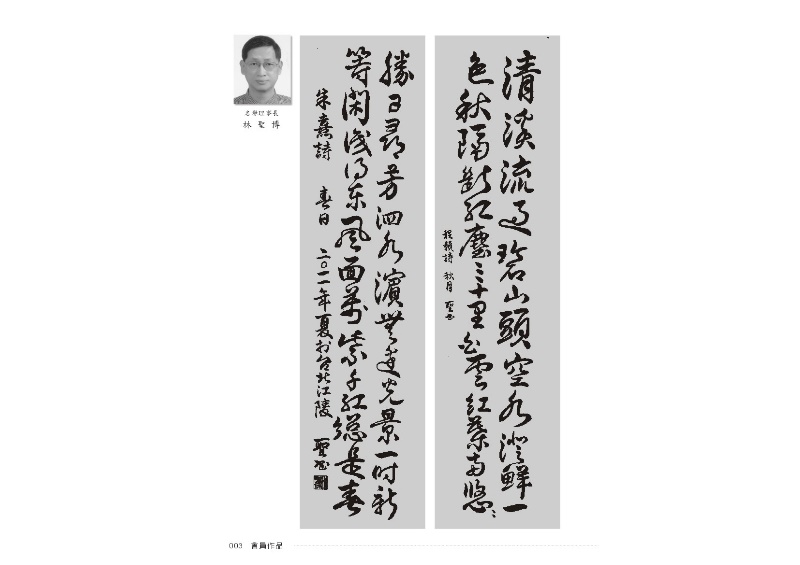 清溪流過碧山頭空水澄鮮一
色秋隔斷紅塵三十里白雲紅葉兩悠〻
程顥詩 秋月 聖書
勝日尋芳泗水濱無邊光景一时新
等閑識得东風面萬紫千紅總是春
朱熹詩 春日 二〇一一年夏於台北江陵 聖書
名譽理事長
林聖博
003 會員作品